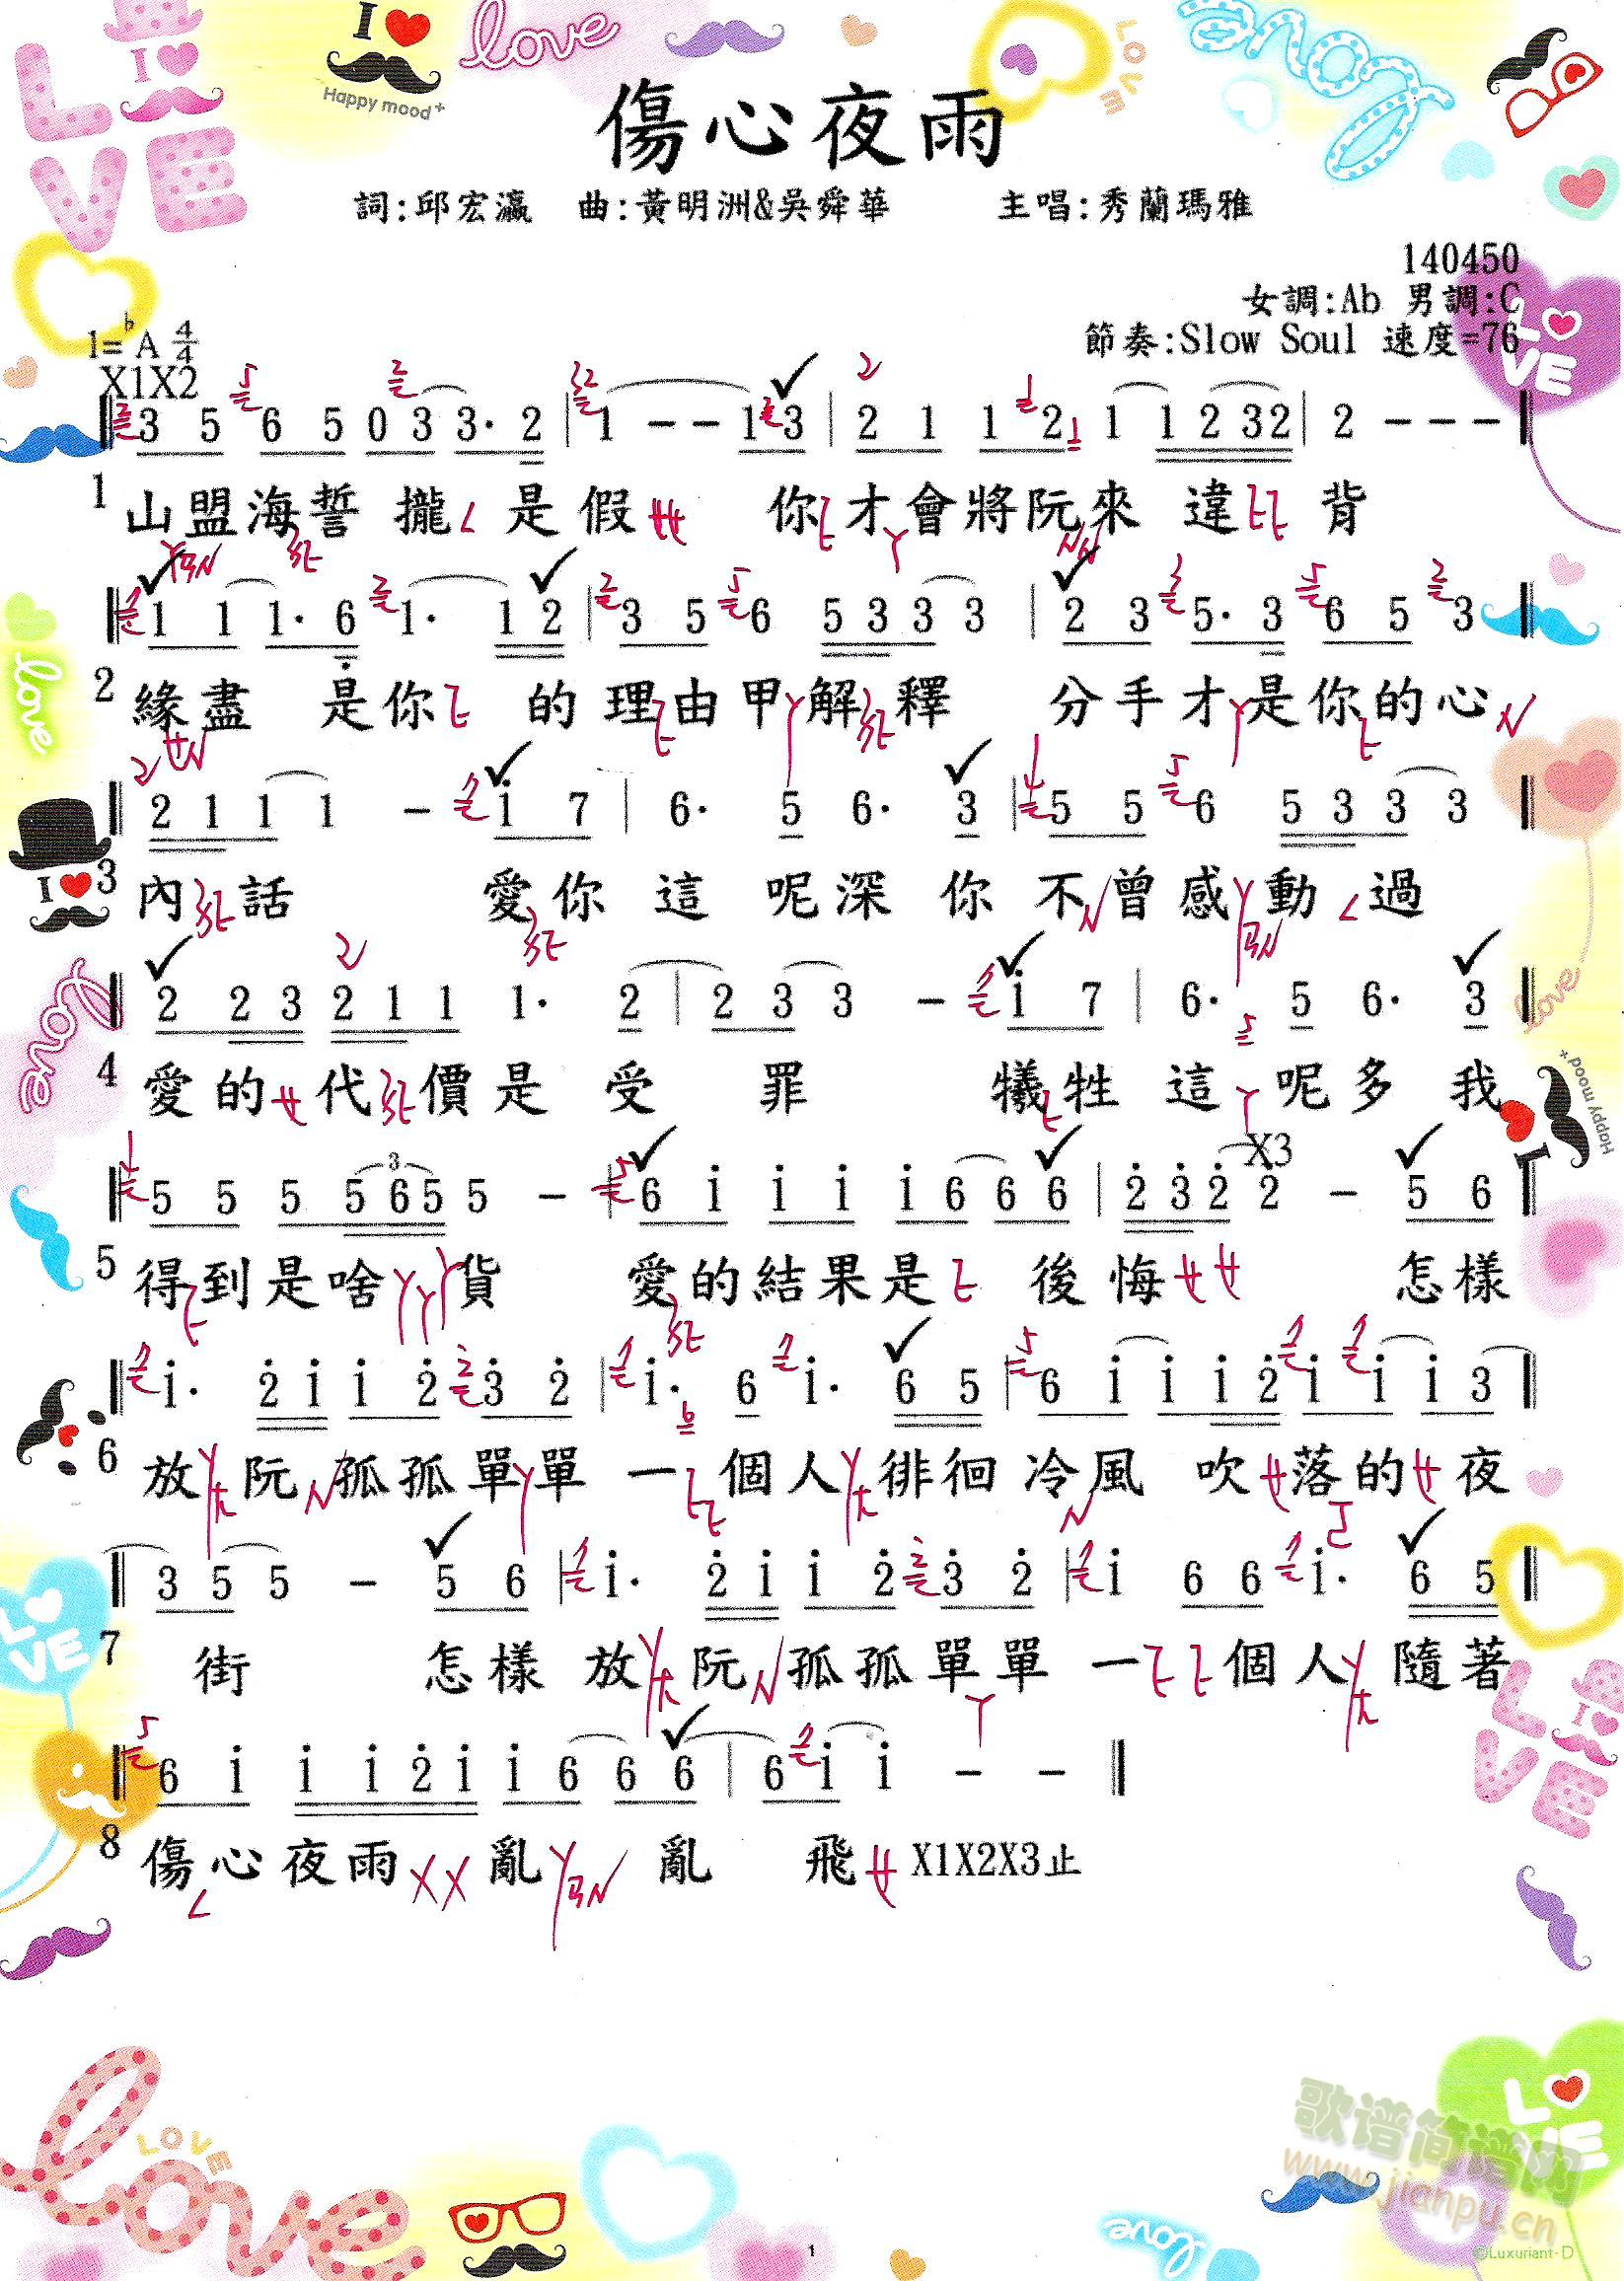 LOVE
I
I
Happy mood+
love
LOVE
Love
傷心夜雨
詞:邱宏瀛 曲:黃明洲&吳舜華 主唱:秀蘭瑪雅
140450
女調:Ab 男調:C
節奏:Slow Soul 速度=76
1=♭A 4/4
X1X2
3 5 6 5 0 3 3· 2 | 1 - - 1 3 | 2 1 1 2 1 1 2 3 2 | 2 - - -
1 山盟海誓 攏 是假 你才會將阮來 違 背
1 1 1· 6 1· 1 2 | 3 5 6 5 3 3 3 | 2 3 5· 3 6 5 3
2 緣盡 是你 的理由甲解釋 分手才是你的心
2 1 1 1 - i 7 | 6· 5 6· 3 | 5 5 6 5 3 3 3
3 內話 愛你 這 呢深 你 不曾感動 過
2 2 3 2 1 1 1· 2 | 2 3 3 - i 7 | 6· 5 6· 3
4 愛的代價是 受 罪 犧牲 這 呢多 我
X3
5 5 5 5 6 5 5 - | 6 i i i i 6 6 6 | 2 3 2 2 - 5 6
5 得到是啥貨 愛的結果是 後悔 怎樣
i· 2 i i 2 3 2 | i· 6 i· 6 5 | 6 i i i 2 i i i 3
6 放阮孤孤單單 一 個人徘徊 冷風 吹落的夜
3 5 5 - 5 6 | i· 2 i i 2 3 2 | i 6 6 i· 6 5
7 街 怎樣 放阮孤孤單單 一 個人 隨著
6 i i i 2 i i 6 6 6 | 6 i i - -
8 傷心夜雨 亂 亂 飛 X1X2X3止
love
I
love
Happy mood+
love
LOVE
LOVE
LOVE
love
LOVE
love
LOVE
歌谱简谱网
www.jianpu.cn
©Luxuriant-D
1